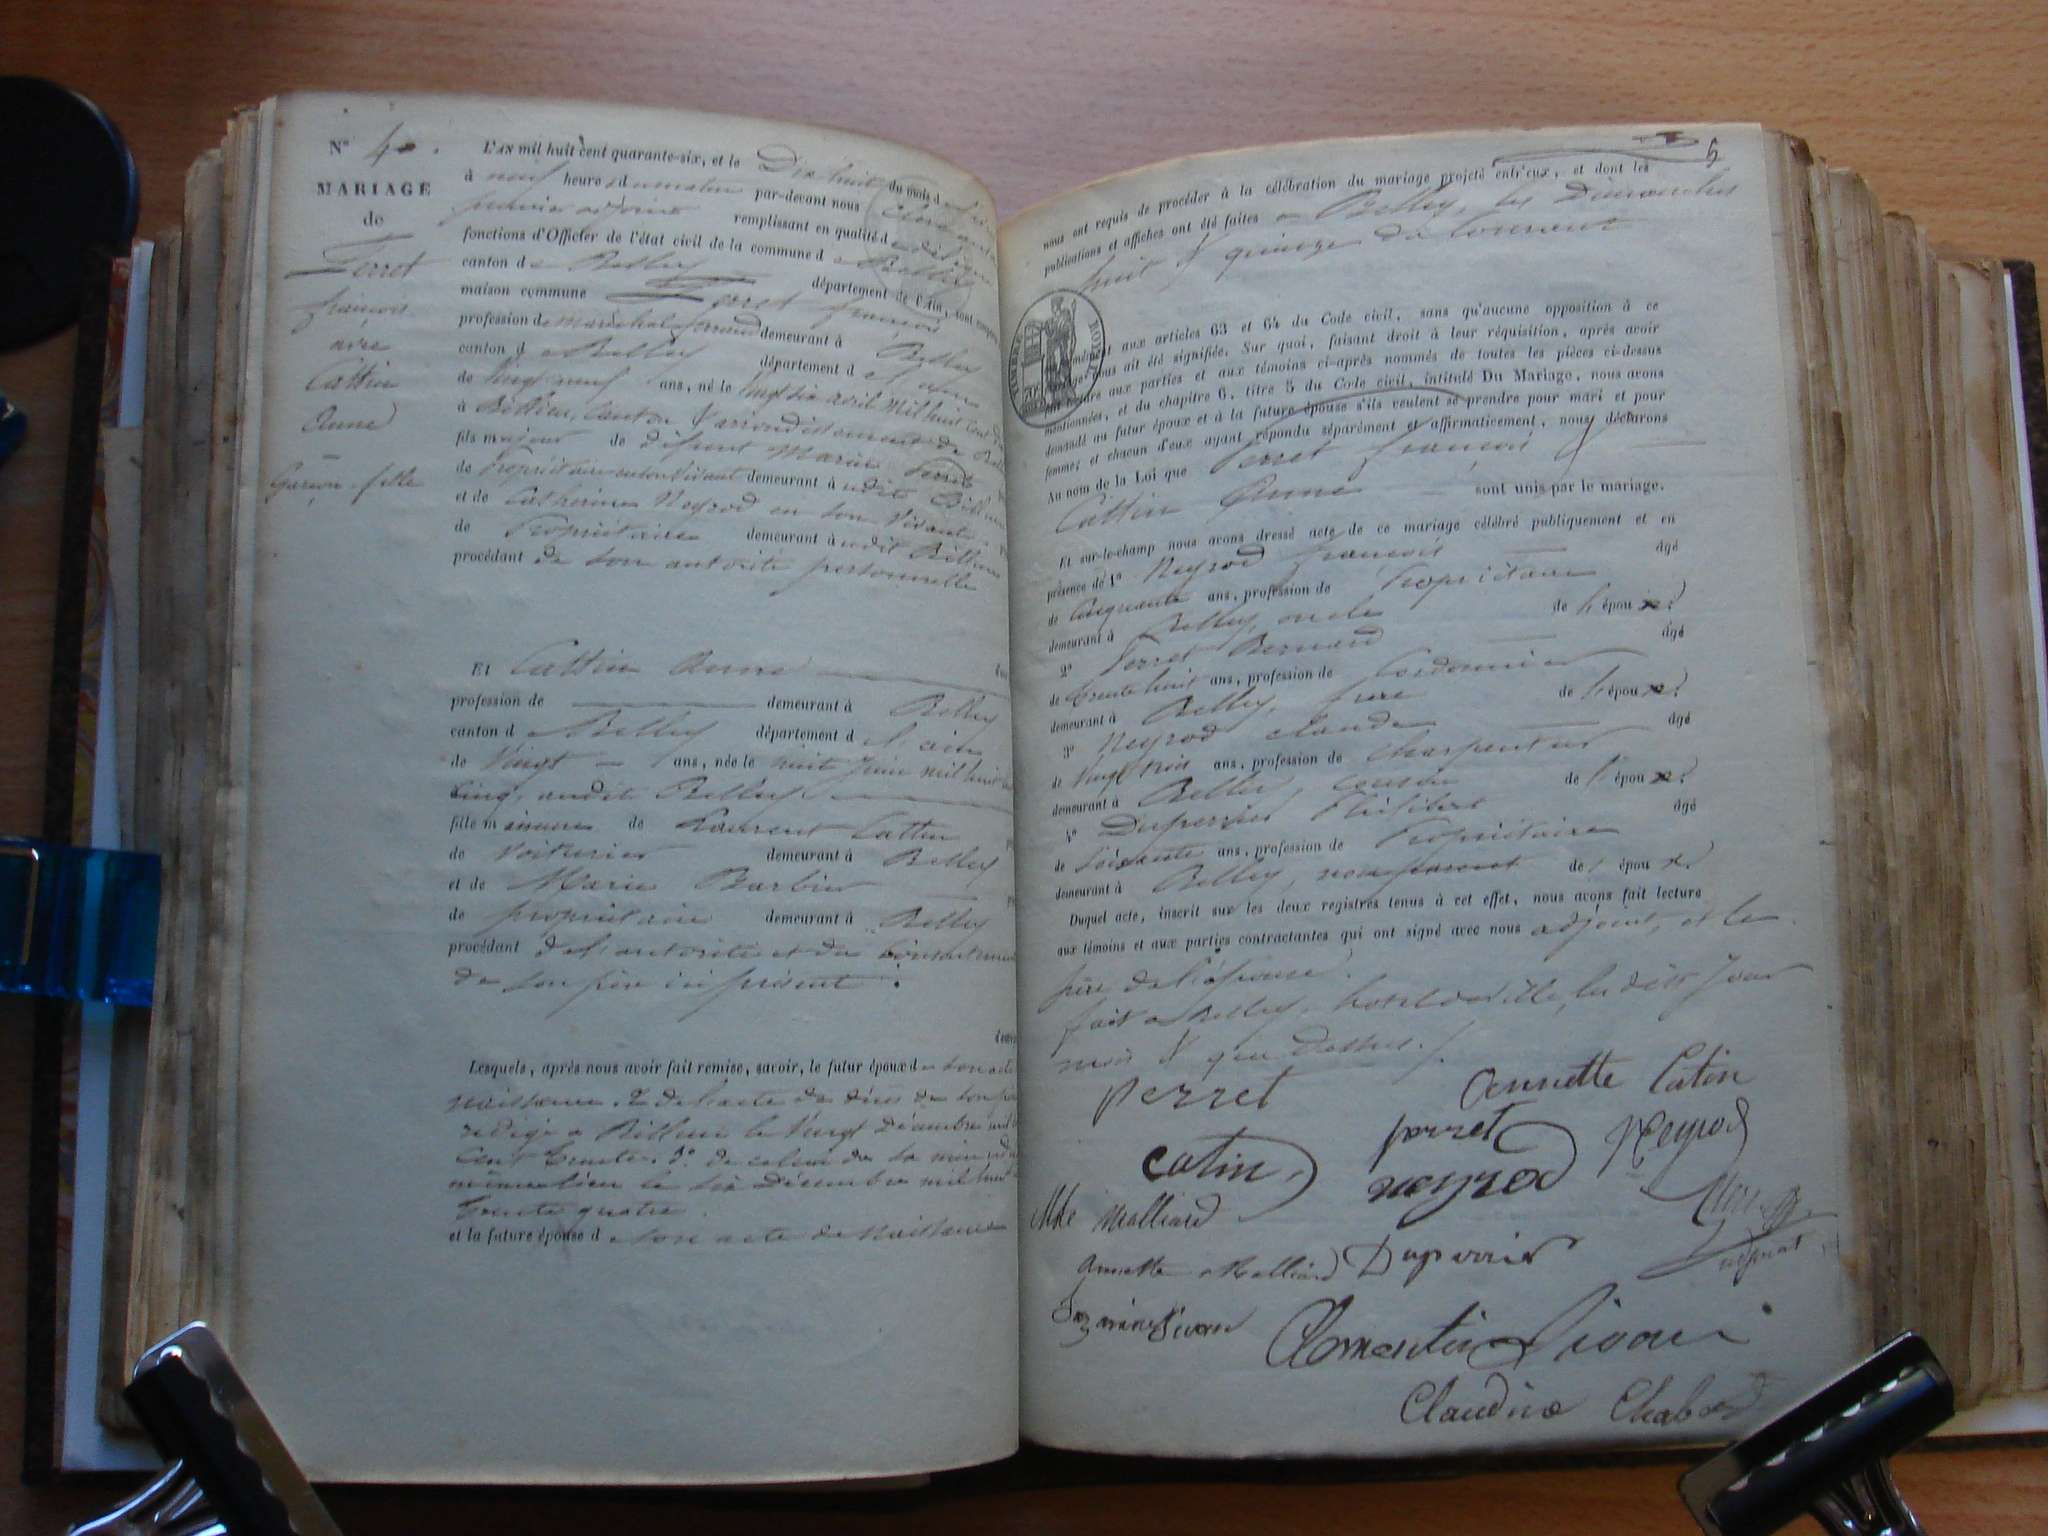 N° 4.
MARIAGE
de
Perret
françois
avec
Cattin
Anne
Garçon - fille
L'AN mil huit cent quarante-six, et le Dix huit du mois d
à neuf heures du matin par-devant nous
premier adjoint remplissant en qualité d
fonctions d'Officier de l'état civil de la commune de Belley
canton de Belley département de l'Ain, sont comparus
maison commune Perret françois
profession de maréchal ferrand demeurant à Belley
canton de Belley département de l'ain
de Vingt neuf ans, né le Vingt six avril mil huit cent
à Billieu, Canton & arrondissement de
fils majeur de défunt Marin Perret
de Propriétaire en son vivant demeurant à udit Billieu
et de Catherine Neyrod en son vivant
de Propriétaire demeurant à udit Billieu
procédant de son autorité personnelle
Et Cattin Anne
profession de demeurant à Belley
canton de Belley département de l'ain
de Vingt ans, née le huit Juin mil huit
Cinq, audit Belley
fille mineure de Laurent Cattin
de Voiturier demeurant à Belley
et de Marie Barbier
de propriétaire demeurant à Belley
procédant de l'autorité et du Consentement
de son père ici présent.
Lesquels, après nous avoir fait remise, savoir, le futur époux de son acte
naissance. 2° de l'acte de décès de son père
rédigé à Billieu le Vingt Décembre mil
Cent trente. 3° de celui de sa mère
même lieu le six Décembre mil huit
trente quatre.
et la future épouse de son acte de Naissance
5
nous ont requis de procéder à la célébration du mariage projeté entr'eux, et dont les
publications et affiches ont été faites à Belley, les Dimanches
huit & quinze du Courant
TIMBRE ROYAL
aux articles 63 et 64 du Code civil, sans qu'aucune opposition à ce
nous ait été signifiée. Sur quoi, faisant droit à leur réquisition, après avoir
aux parties et aux témoins ci-après nommés de toutes les pièces ci-dessus
mentionnées, et du chapitre 6, titre 5 du Code civil, intitulé Du Mariage, nous avons
demandé au futur époux et à la future épouse s'ils veulent se prendre pour mari et pour
femme; et chacun d'eux ayant répondu séparément et affirmativement, nous déclarons
Au nom de la Loi que Perret françois &
Cattin Anne sont unis par le mariage.
Et sur-le-champ nous avons dressé acte de ce mariage célébré publiquement et en
présence de 1° Neyrod françois âgé
de Cinquante ans, profession de Propriétaire
demeurant à Belley, oncle de l'époux.
2° Perret Bernard âgé
de trente huit ans, profession de Cordonnier
demeurant à Belley, frère de l'époux.
3° Neyrod Claude âgé
de Vingt trois ans, profession de Charpentier
demeurant à Belley, cousin de l'époux.
4° Duperrier Philibert âgé
de Soixante ans, profession de Propriétaire
demeurant à Belley, non parent de l'époux.
Duquel acte, inscrit sur les deux registres tenus à cet effet, nous avons fait lecture
aux témoins et aux parties contractantes qui ont signé avec nous adjoint, et le
père de l'épouse.
fait à Belley, hotel de ville, les dits Jour
mois & an Dessus.
Perret Annette Catin
perret Neyrod
Catin neyrod
Mke Molliard
Annette Molliard Duperrier
adjoint
Claudine Chabod